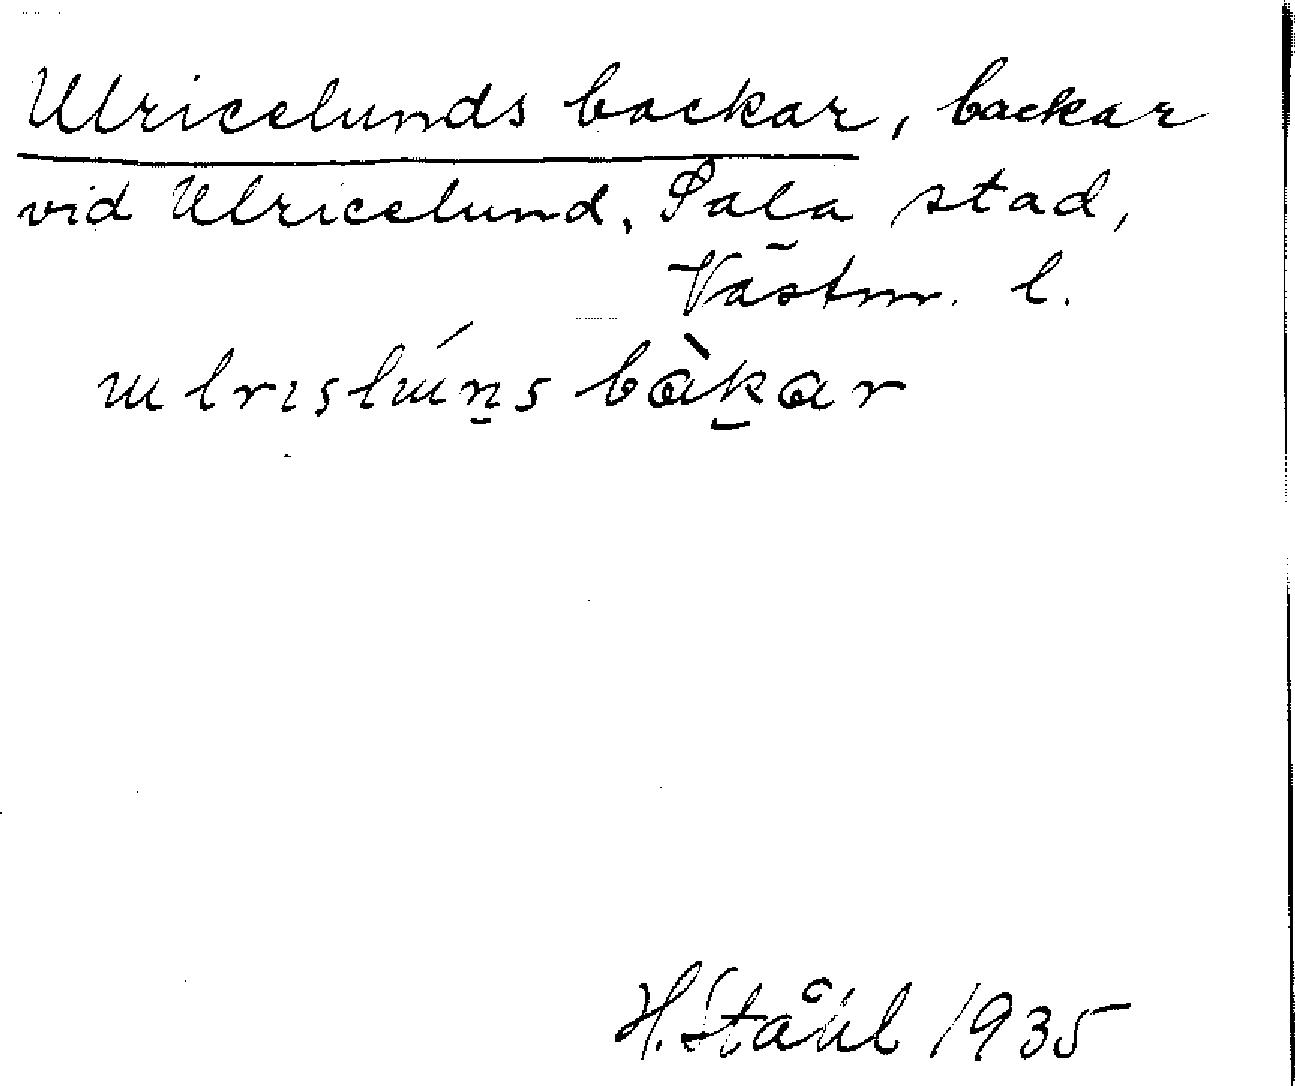 Ulricelunds backar, backar
vid Ulricelund, Sala stad,
Västm. l.
ɯlrıʂlɯ́n̠s bàk̠ar
H. Ståhl 1935